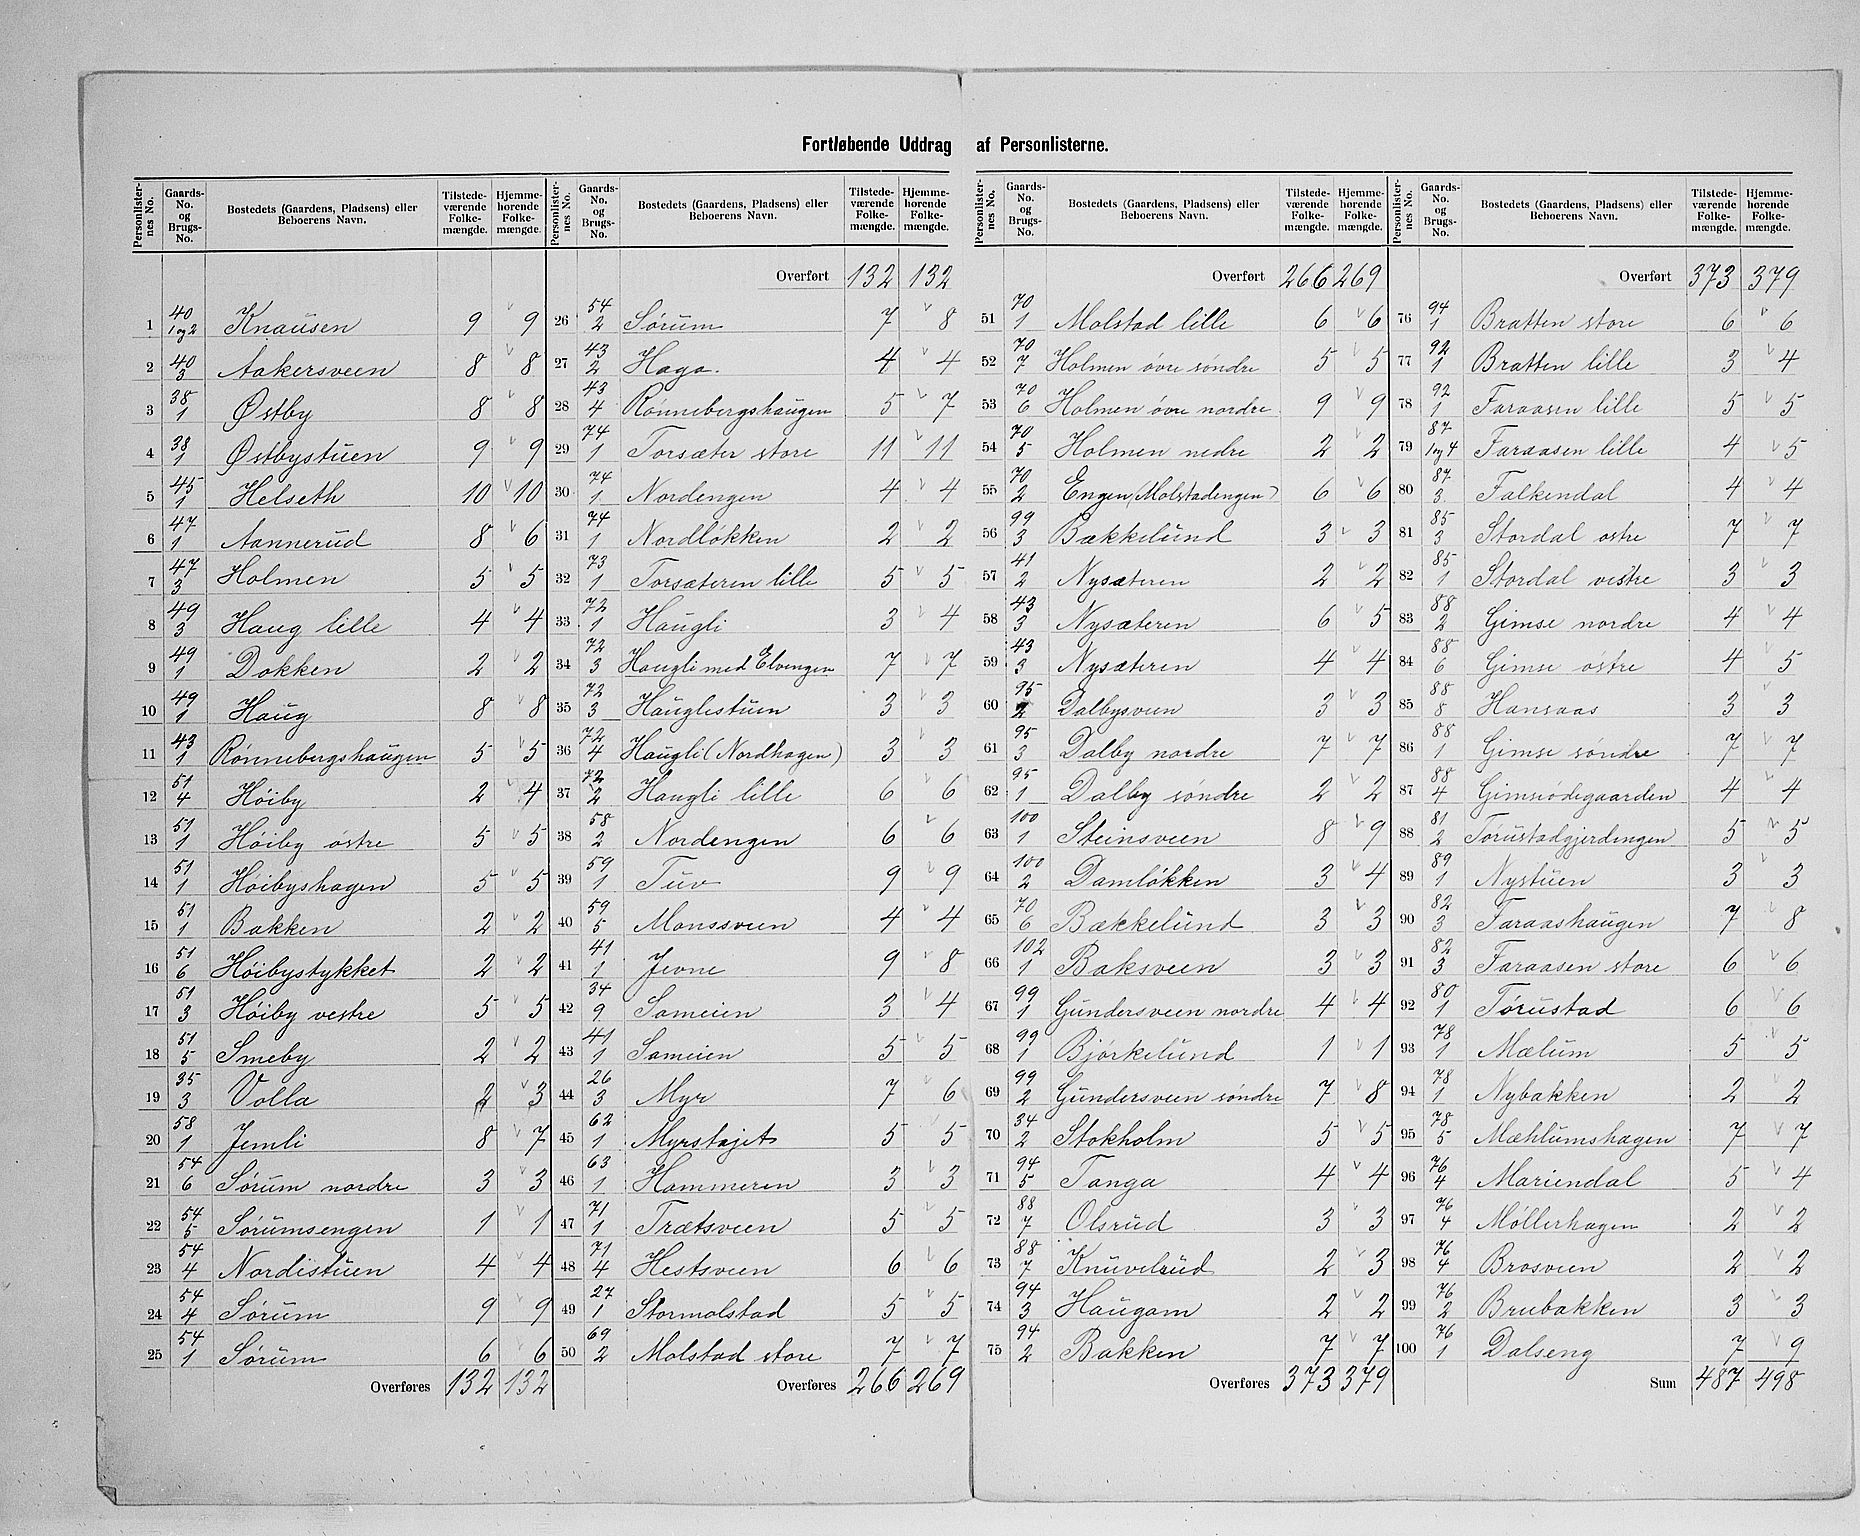 Fortløbende Uddrag af Personlisterne.
Personlisternes No. Gaards-No. og Brugs-No. Bostedets (Gaardens, Pladsens) eller Beboerens Navn. Tilstedeværende Folkemængde. Hjemmehørende Folkemængde.
1 40 1og2 Knausen 9 9
2 40 3 Aakersveen 8 8
3 38 1 Østby 8 8
4 38 1 Østbystuen 9 9
5 45 1 Helseth 10 10
6 47 1 Aannerud 8 6
7 47 3 Holmen 5 5
8 49 3 Haug lille 4 4
9 49 1 Dokken 2 2
10 49 1 Haug 8 8
11 43 1 Rønnebergshaugen 5 5
12 51 4 Høiby 2 4
13 51 1 Høiby østre 5 5
14 51 1 Høibyshagen 5 5
15 51 1 Bakken 2 2
16 51 6 Høibystykket 2 2
17 51 3 Høiby vestre 5 5
18 51 5 Smeby 2 2
19 35 3 Volla 2 3
20 58 1 Jemli 8 7
21 54 6 Sørum nordre 3 3
22 54 5 Sørumsengen 1 1
23 54 4 Nordistuen 4 4
24 54 4 Sørum 9 9
25 54 1 Sørum 6 6
Overføres 132 132
Personlisternes No. Gaards-No. og Brugs-No. Bostedets (Gaardens, Pladsens) eller Beboerens Navn. Tilstedeværende Folkemængde. Hjemmehørende Folkemængde.
Overført 132 132
26 54 2 Sørum 7 8
27 43 2 Haga. 4 4
28 43 4 Rønnebergshaugen 5 7
29 74 1 Torsæter store 11 11
30 74 1 Nordengen 4 4
31 74 1 Nordløkken 2 2
32 73 1 Torsæteren lille 5 5
33 72 1 Haugli 3 4
34 72 3 Haugli med Elvengen 7 7
35 72 3 Hauglistuen 3 3
36 72 4 Haugli (Nordhagen) 3 3
37 72 2 Haugli lille 6 6
38 58 2 Nordengen 6 6
39 59 1 Tuv 9 9
40 59 5 Monssveen 4 4
41 41 1 Jevne 9 8
42 34 9 Sameien 3 4
43 41 1 Sameien 5 5
44 26 3 Myr 7 6
45 62 1 Myrstajet 5 5
46 63 1 Hammeren 3 3
47 71 1 Trætsveen 5 5
48 71 4 Hestsveen 6 6
49 27 1 Stormolstad 5 5
50 69 2 Molstad store 7 7
Overføres 266 269
Personlisternes No. Gaards-No. og Brugs-No. Bostedets (Gaardens, Pladsens) eller Beboerens Navn. Tilstedeværende Folkemængde. Hjemmehørende Folkemængde.
Overført 266 269
51 70 1 Molstad lille 6 6
52 70 7 Holmen øvre søndre 5 5
53 70 6 Holmen øvre nordre 9 9
54 70 5 Holmen nedre 2 2
55 70 2 Engen (Molstadengen) 6 6
56 99 3 Bækkelund 3 3
57 41 2 Nysæteren 2 2
58 43 3 Nysæteren 6 5
59 43 3 Nysæteren 4 4
60 95 2 Dalbysveen 3 3
61 95 3 Dalby nordre 7 7
62 95 1 Dalby søndre 2 2
63 100 1 Steinsveen 8 9
64 100 2 Damløkken 3 4
65 70 6 Bækkelund 3 3
66 102 1 Baksveen 3 3
67 99 1 Gundersveen nordre 4 4
68 99 1 Bjørkelund 1 1
69 99 2 Gundersveen søndre 7 8
70 34 2 Stokholm 5 5
71 94 5 Tanga 4 4
72 88 7 Olsrud 3 3
73 88 7 Knuvelrud 2 3
74 94 3 Haugam 2 2
75 94 2 Bakken 7 7
Overføres 373 379
Personlisternes No. Gaards-No. og Brugs-No. Bostedets (Gaardens, Pladsens) eller Beboerens Navn. Tilstedeværende Folkemængde. Hjemmehørende Folkemængde.
Overført 373 379
76 94 1 Bratten store 6 6
77 92 1 Bratten lille 3 4
78 92 1 Faraasen lille 5 5
79 87 1og4 Faraasen lille 4 5
80 87 3 Falkendal 4 4
81 85 3 Stordal østre 7 7
82 85 1 Stordal vestre 3 3
83 88 2 Gimse nordre 4 4
84 88 6 Gimse østre 4 5
85 88 8 Hansaas 3 3
86 88 1 Gimse søndre 7 7
87 88 4 Gimseødegaarden 4 4
88 81 2 Tørustadgjerdingen 5 5
89 89 1 Nystuen 3 3
90 82 3 Faraashaugen 7 8
91 82 3 Faraasen store 6 6
92 80 1 Tørustad 6 6
93 78 1 Mælum 5 5
94 78 1 Nybakken 2 2
95 78 5 Mæhlumshagen 7 7
96 76 4 Mariendal 5 4
97 76 4 Møllerhagen 2 2
98 76 4 Brosveen 2 2
99 76 2 Brubakken 3 3
100 76 1 Dalseng 7 9
Sum 487 498